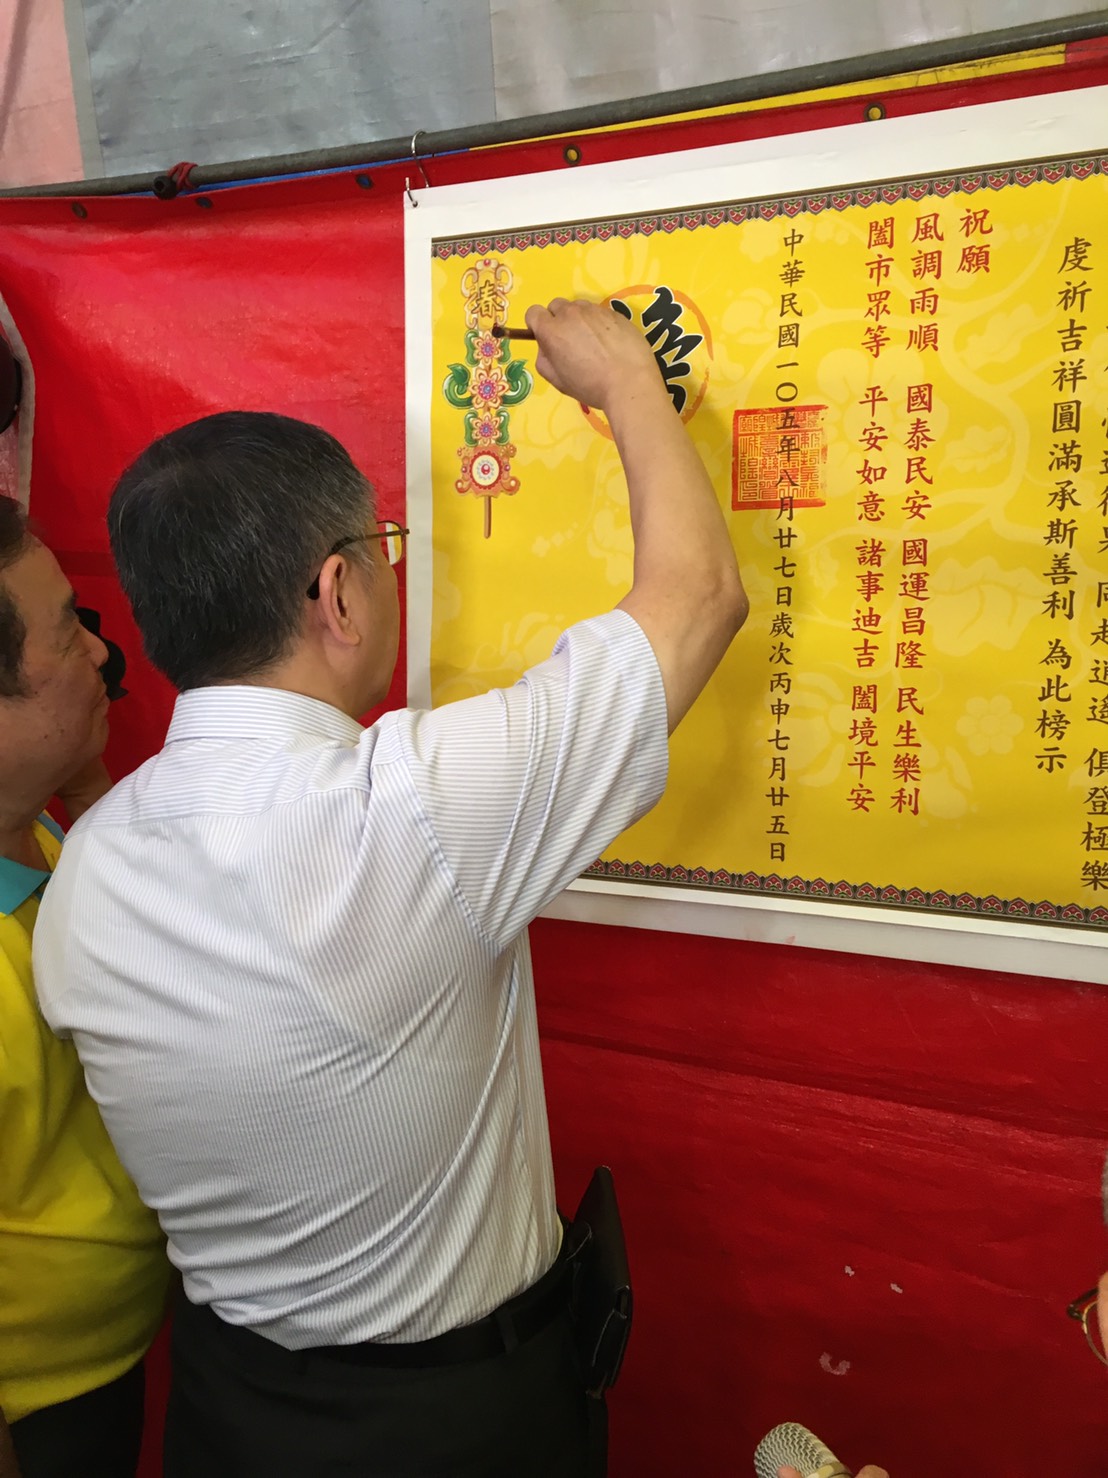 同超逍遙 俱登極樂
虔祈吉祥圓滿承斯善利 為此榜示
祝願
風調雨順 國泰民安 國運昌隆 民生樂利
闔市眾等 平安如意 諸事迪吉 闔境平安
中華民國一〇五年八月廿七日歲次丙申七月廿五日
春